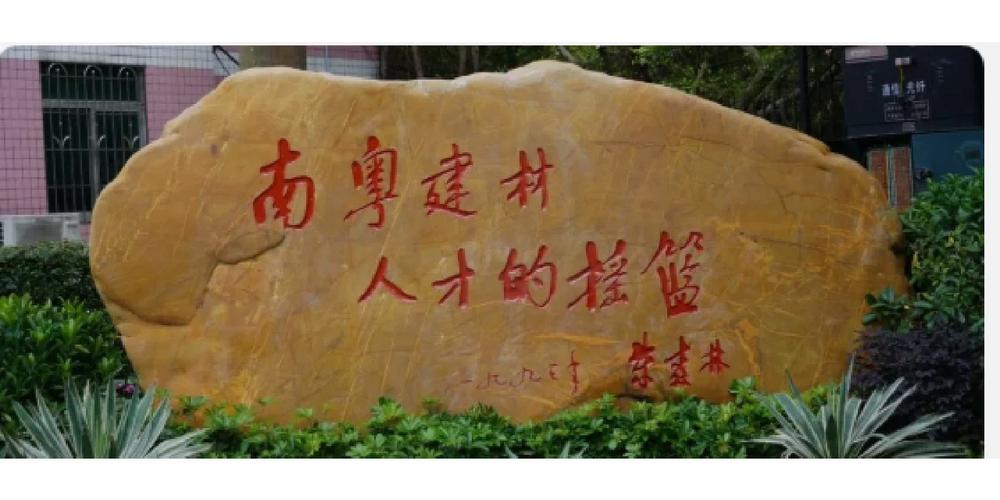 南粤建材
人才的摇篮
一九九三年 朱森林
通信光纤